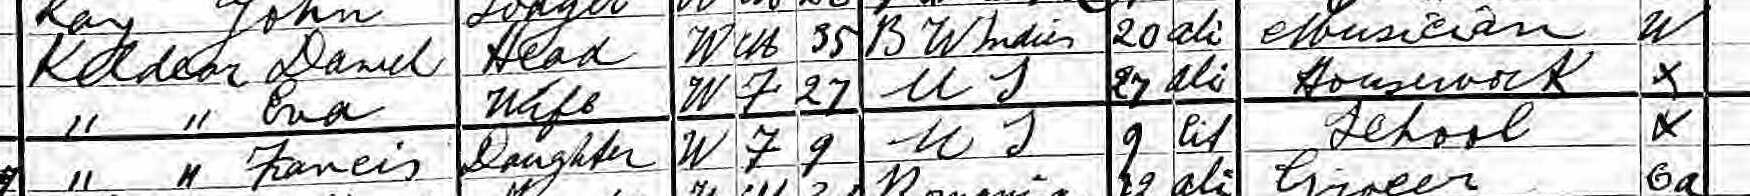 Kay John Lodger
Keldear Daniel Head W M 35 B W Indies 20 ali Musician W
" " Eva Wife W F 27 U S 27 ali Housework X
" " Francis Daughter W F 9 U S 9 Cit School X
Romania ali Grocer